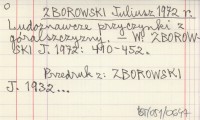 ZBOROWSKI Juliusz 1972 r.
Ludoznawcze przyczynki z
góralszczyzny. – W: ZBOROW-
SKI J. 1972: 440-452.
Przedruk z: ZBOROWSKI
J. 1932...